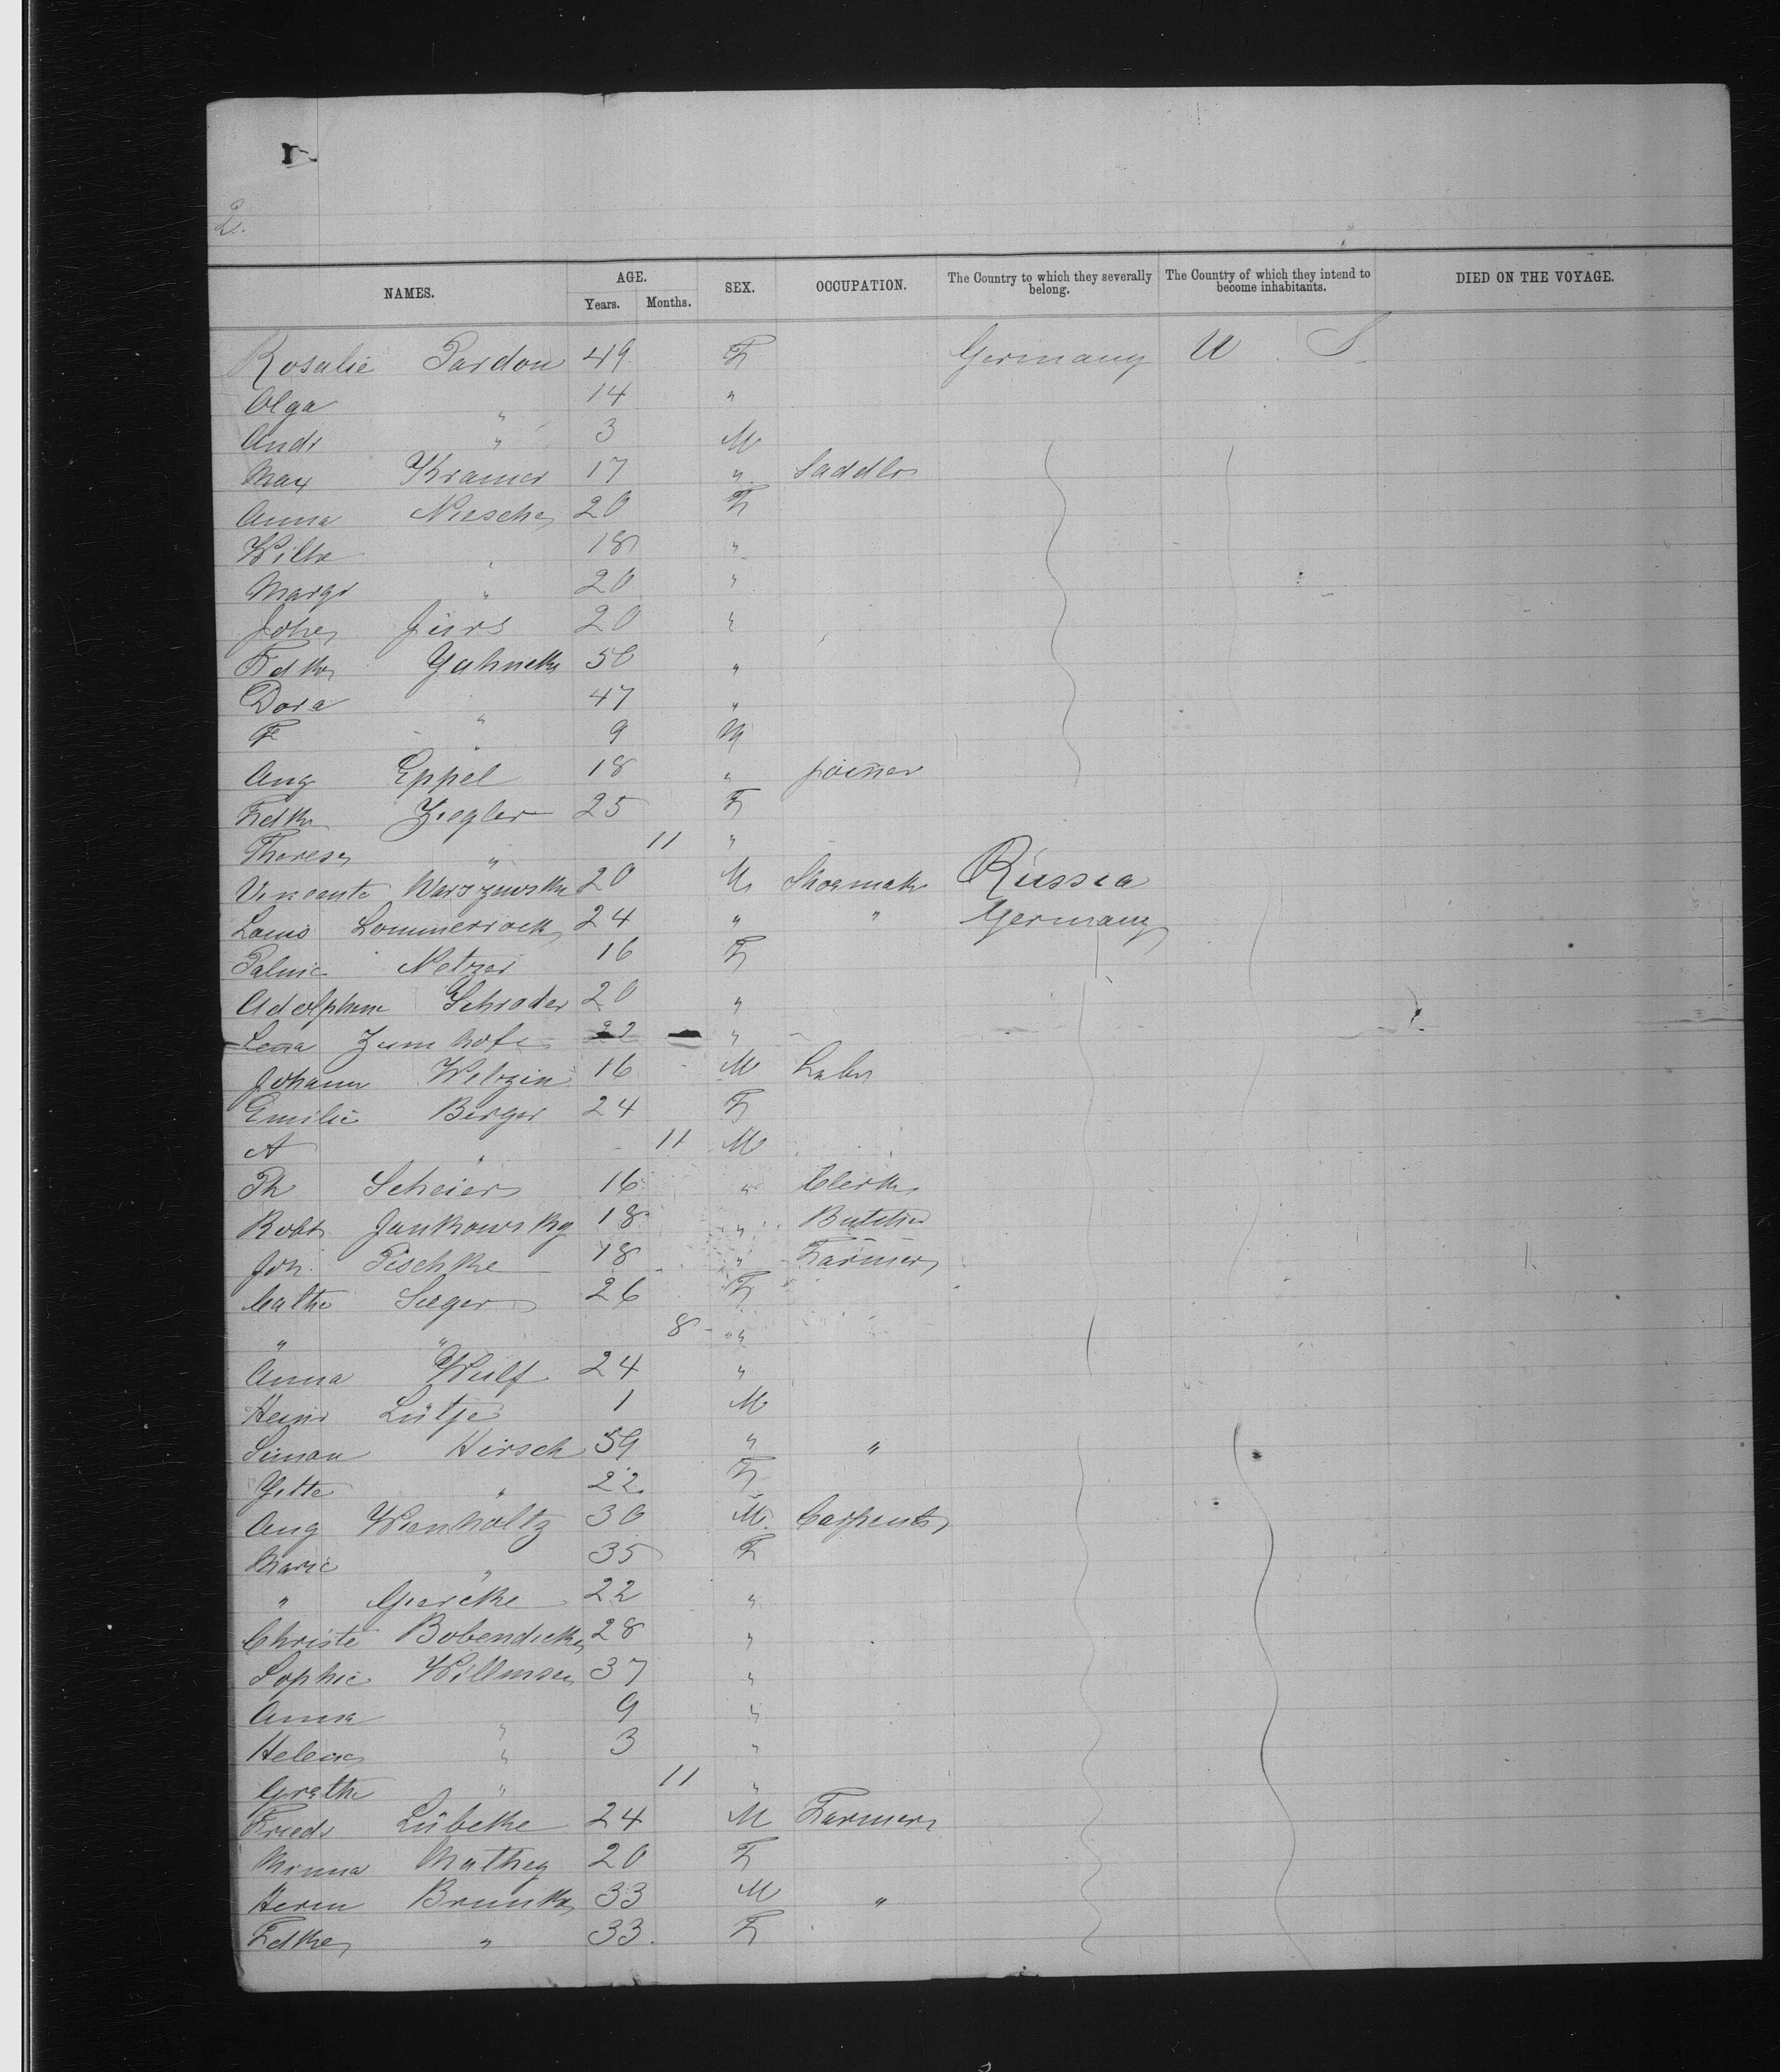 2.
NAMES. AGE. Years. Months. SEX. OCCUPATION. The Country to which they severally belong. The Country of which they intend to become inhabitants. DIED ON THE VOYAGE.
Rosalie Pardon 49 F Germany U. S.
Olga " 14 "
Andr " 3 M
Max Kramer 17 " Saddler
Anna Niesche 20 F
Wilhe " 18 "
Margr " 20 "
Johe Jürs 20 "
Fedke Jahncke 50 "
Dora " 47 "
F " 9 M
Aug Eppel 18 " joiner
Fedke Ziegler 25 F
Therese " 11 "
Vincente Warszewska 20 M Shoemak Russia
Louis 24 " " Germany
Netzer 16 F
Adolphine Schroder 20 "
Lena Zumhofe 22 "
Johann Welzin 16 M Labr
Emilie Berger 24 F
A " 11 M
Th Scheier 16 " Clerk
Robt Jankowsky 18 " Butcher
Joh. Pischke 18 " Farmer
Cathe Sieger 26 F
" " 8 "
Anna Wulf 24 "
Heinr Lütje 1 M
Simon Hirsch 59 " "
Yette " 22 F
Aug Wienholtz 30 M Carpenter
Marie " 35 F
" Giercke 22 "
Christe Bobendicke 28 "
Sophie Willmsen 37 "
Anna " 9 "
Helene " 3 "
Grethe " 11 "
Friedr Lübcke 24 M Farmer
Minna Mathey 20 F
Herm Brunke 33 M "
Fedke " 33. F